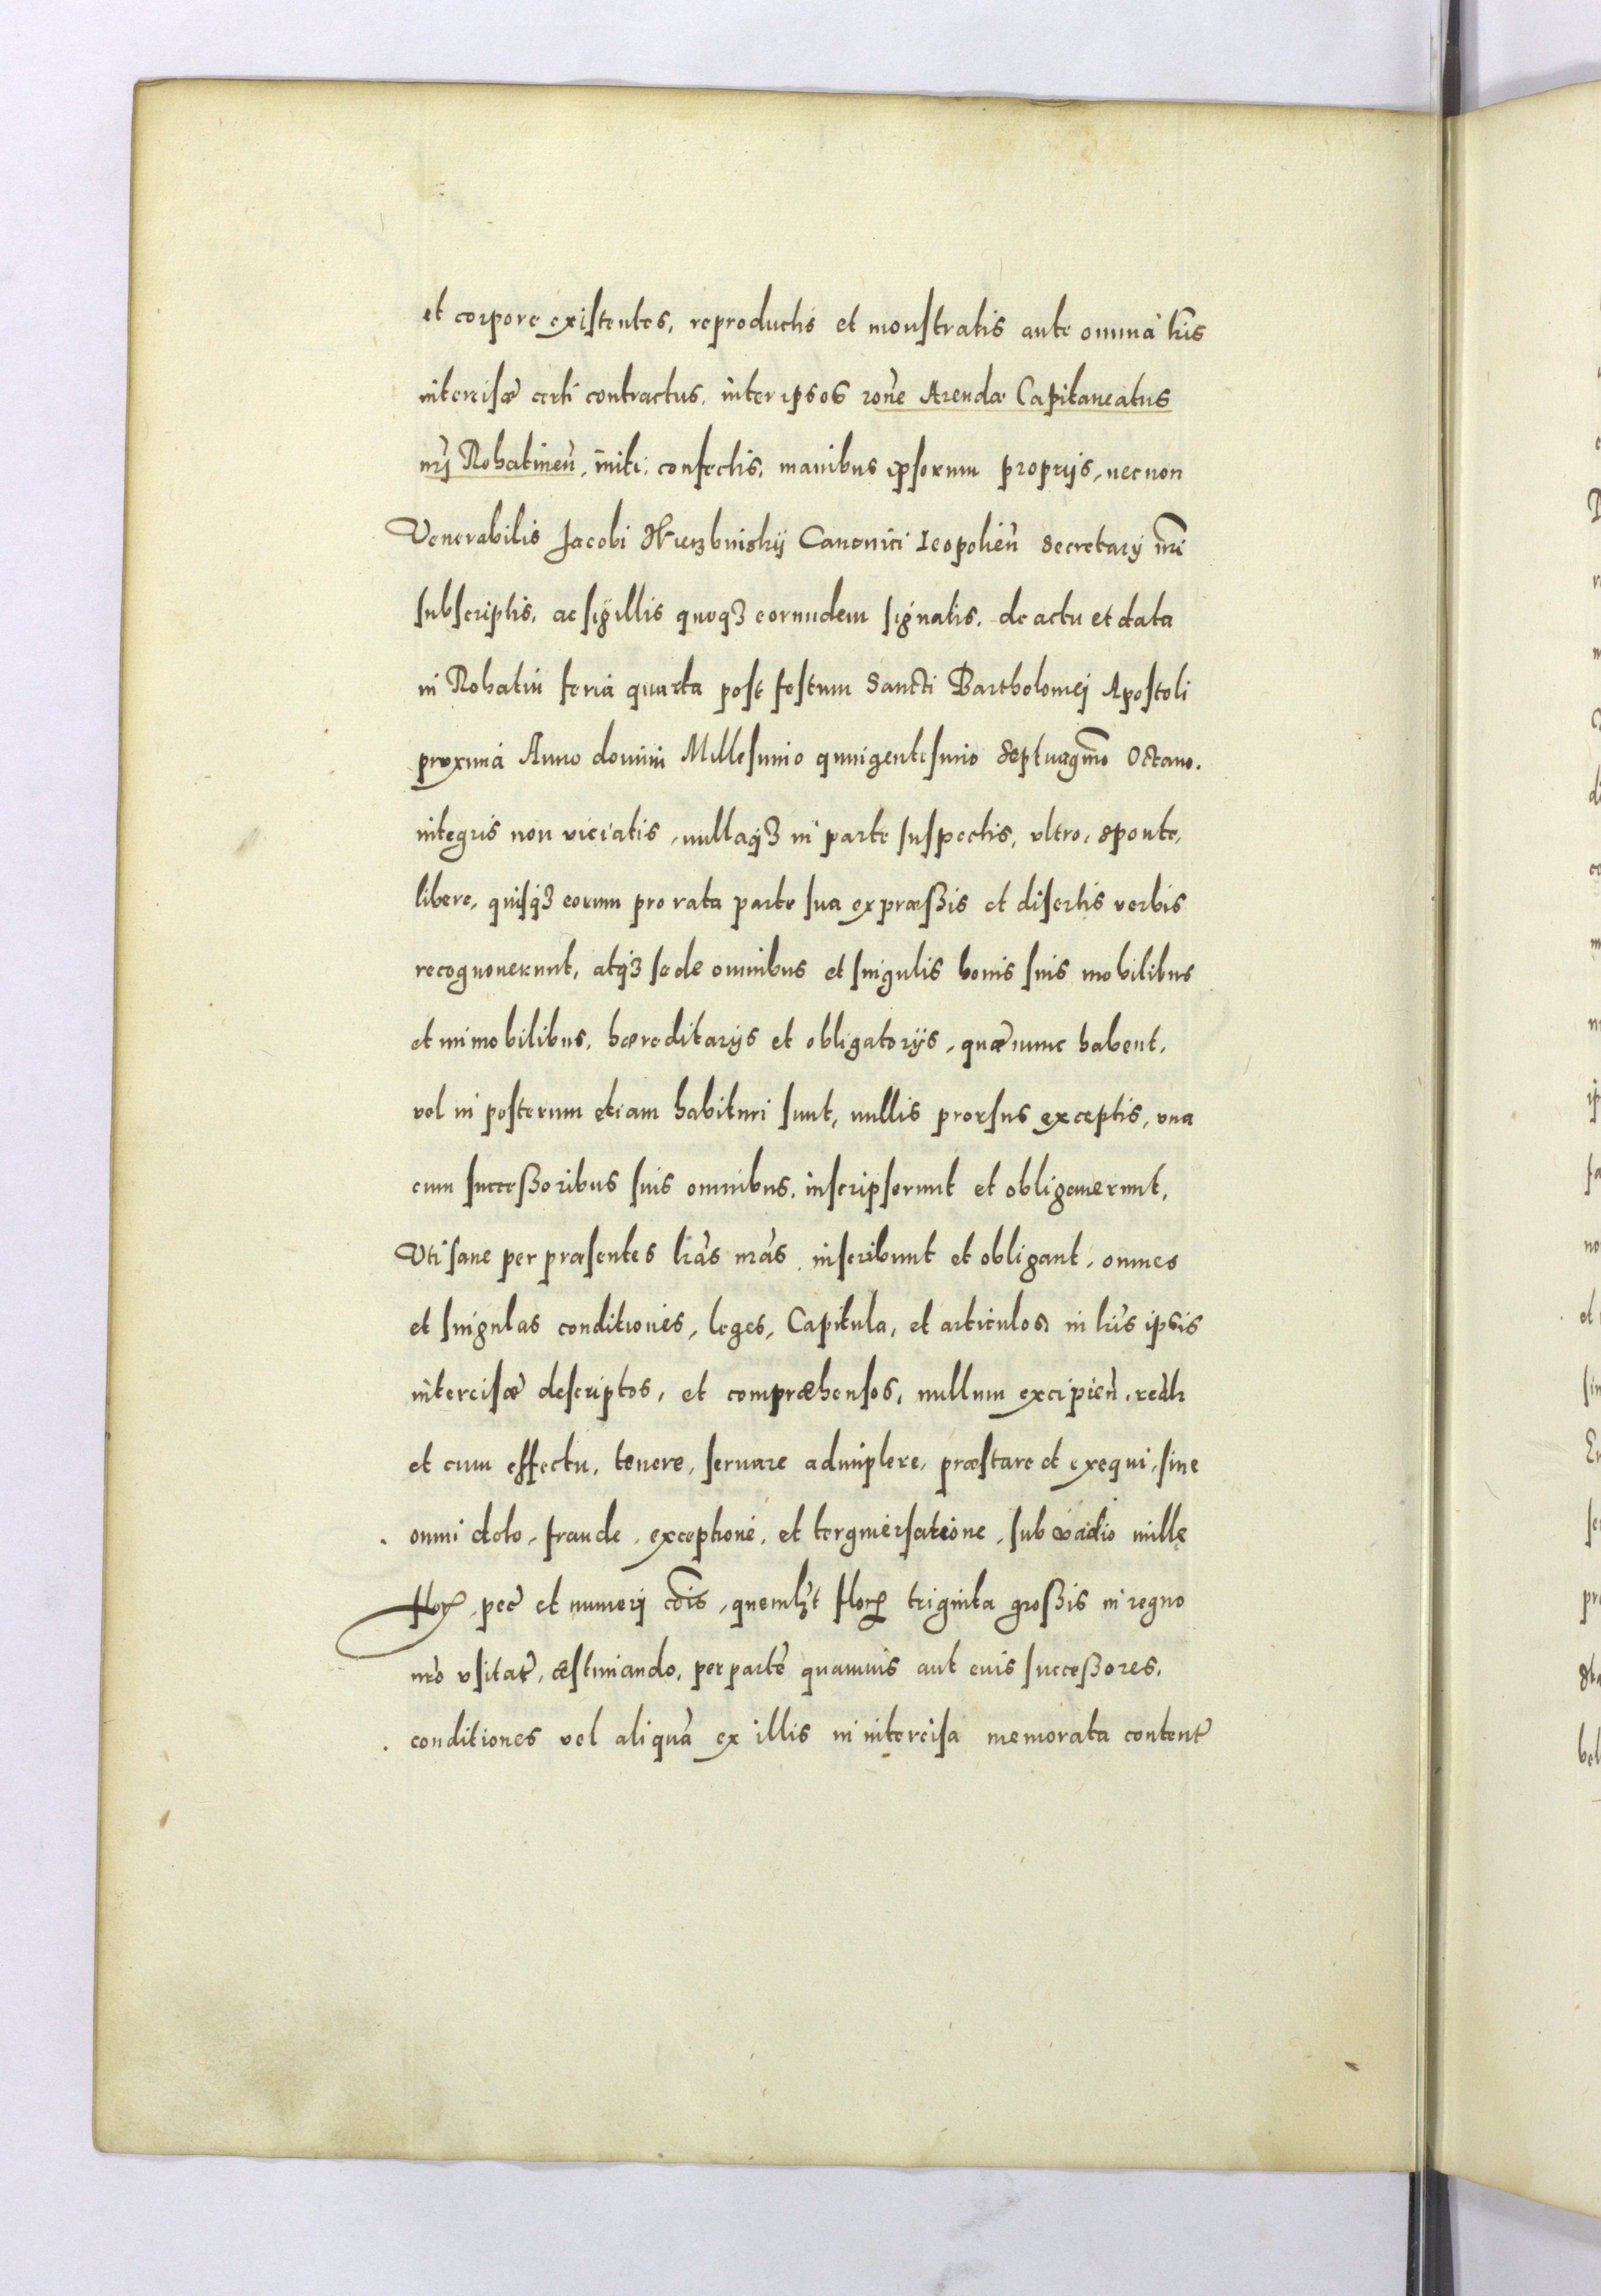 et corpore existentes, reproductis et monstratis ante omnia lr̃is
intercisæ certi contractus, inter ipsos rõne Arendæ Capitaneatus
nr̃j Rohatineñ, initi, confectis, manibus ipsorum proprijs, necnon
Venerabilis Jacobi Canonici Leopolieñ Secretarij nr̃i
subscriptis, ac sigillis quoqȝ eorundem signatis, de actu et data
in Rohatin feria quarta post festum Sancti Bartholomej Apostoli
proxima Anno domini Millesimo quingentesimo Septuagm̃o Octauo.
integris non viciatis, nullaqȝ in parte suspectis, vltro, sponte,
libere, quisqȝ eorum pro rata parte sua expræßis et disertis verbis
recognouerunt, atqȝ se de omnibus et singulis bonis suis mobilibus
et immobilibus, hæreditarijs et obligatorijs, quæ nunc habent,
vel in posterum etiam habituri sunt, nullis prorsus exceptis, vna
cum succeßoribus suis omnibus, inscripserunt et obligauerunt,
Vti sane per præsentes lr̃as nr̃as inscribunt et obligant, omnes
et singulas conditiones, leges, Capitula, et articulos in lr̃is ipsis
intercisæ descriptos, et compræhensos, nullum excipieñ, realr
et cum effectu, tenere, seruare adimplere, præstare et exequi, sine
omni dolo, fraude, exceptione, et tergiuersatione, sub vadio mille
flor, pec̃ et numerj cõis, quemlȝt flor triginta großis in regno
nr̃o vsitat̃, æstimando, per partẽ quamuis aut euis succeßores,
conditiones vel aliquã ex illis in intercisa memorata content̃